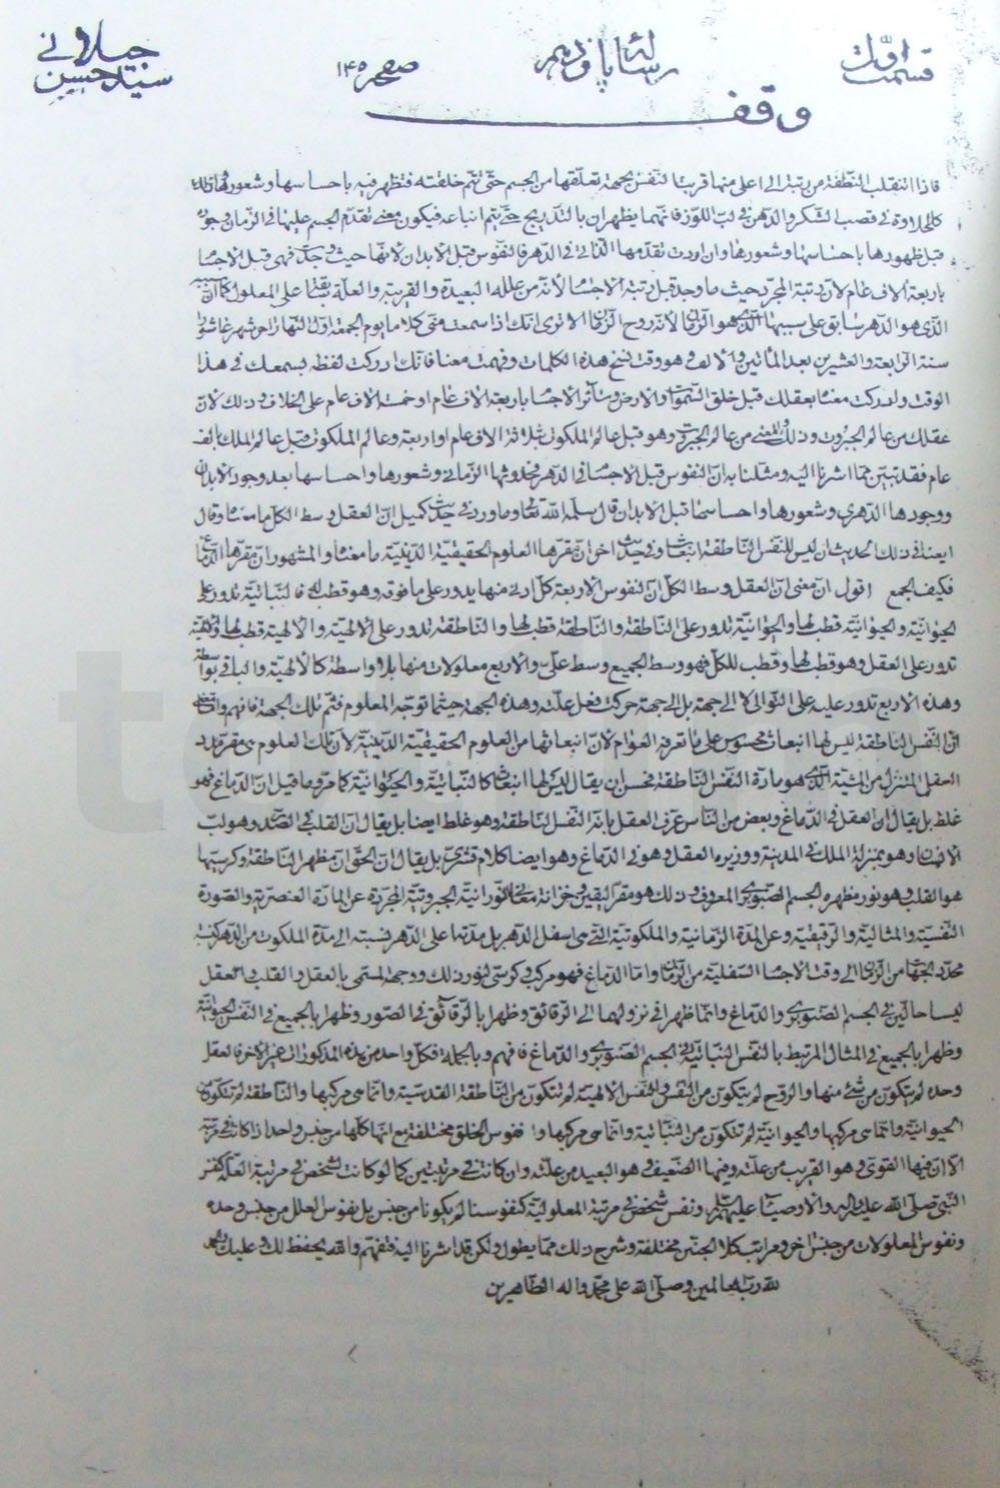 قسمت اول رسالهٔ یازدهم صفحه ۱۴۵ سید حسن جیلانی
وقف
فاذا انتقلت النطفة من رتبة الى اعلى منها قربت النفس بجهة تعلقها من الجسم حتى تتم خلقته فتظهر فيه باحساسها وشعورها
كالحلاوة فى قصب السكر والدهن فى لب اللوز فانهما يظهران بالتدريج حتى يتم فيكون معنى تقدم الجسم عليها فى الزمان
قبل ظهورها باحساسها وشعورها وان اردت تقدمها الذاتى فى الدهر فالنفوس قبل الابدان لانها حيث وجدت فهى قبل الاجسام
باربعة الاف عام لان رتبة المجرد حيث ما وجد قبل رتبة الاجسام لانه من علله البعيدة والقريبة والعلة سابقة على المعلول كما ان
الذى هو الدهر سابق على الذى هو الزمان لانه روح الزمان الا ترى انك اذا سمعت منى كلاما يوم الجمعة اول النهار
سنة الرابعة والعشرين بعد المائتين والالف وهو وقت نسخ هذه الكلمات وفهمت معناه فانك ادركت لفظه بسمعك فى هذا
الوقت وادركت معناه بعقلك قبل خلق السموات والارض وسائر الاجسام باربعة الاف عام او خمسة الاف عام على الخلاف وذلك لان
عقلك من عالم الجبروت وذلك المعنى من عالم الجبروت وهو قبل عالم الملكوت بثلاثة الاف عام او اربعة وعالم الملكوت قبل عالم الملك بالف
عام فقد تبين مما اشرنا اليه ومثلنا به ان النفوس قبل الاجسام فى الدهر وشعورها واحساسها بعد وجود الابدان
ووجودها الدهرى وشعورها واحساسها قبل الابدان قال سلمه الله تعالى وما ورد فى حديث كميل ان العقل وسط الكل ما معناه وقال
ايضا فى ذلك الحديث ان ليس للنفس الناطقة انبعاث وفى حديث اخر ان مقرها العلوم الحقيقية الدينية ما معناه والمشهور ان مقرها الدماغ
فكيف الجمع اقول ان معنى ان العقل وسط الكل ان النفوس الاربعة كل ادنى منها يدور على ما فوقه وهو قطب له فالنباتية تدور على
الحيوانية والحيوانية قطب لها والحيوانية تدور على الناطقة والناطقة قطب لها والناطقة تدور على الالهية والالهية قطب لها والالهية
تدور على العقل وهو قطب لها وقطب للكل فهو وسط الجميع والاربع معلولات منها بلا واسطة كالالهية والباقى بواسطة
وهذه الاربع تدور عليه على التوالى لا الى جهة بل الى جهة حركت فعل علته وهذه الجهة حيثما توجه المعلوم فثم تلك الجهة فافهم
ان النفس الناطقة ليس لها انبعاث محسوس على ما تعرفه العوام لان انبعاثها من العلوم الحقيقية الدينية لان تلك العلوم هى مقر مدد
العقل المتنزل من المشية الذى هو مادة النفس الناطقة فحسن ان يقال ليس لها انبعاث كالنباتية والحيوانية كما مر وما قيل ان الدماغ فهو
غلط بل يقال ان العقل فى الدماغ وبعض من الناس عرف العقل بانه النفس الناطقة وهو غلط ايضا بل يقال ان القلب فى الصدر وهو لب
الانسان وهو بمنزلة الملك فى المدينة ووزيره العقل وهو فى الدماغ وهو ايضا كلام قشرى بل يقال ان الحق ان مظهر الناطقة وكرسيها
هو القلب وهو نور مظهره الجسم الصنوبرى المعروف وذلك هو مقر اليقين وخزانة معانى النورانية الجبروتية المجردة عن المادة العنصرية والصورة
النفسية والمثالية والرقيقية وعن المدة الزمانية والملكوتية التى هى اسفل الدهر بل مدتها على الدهر نسبته الى مدة الملكوت من الدهر كنسبة
محدد الجهات من الزمان الى وقت الاجسام السفلية من الزمان واما الدماغ فهو مركب وكرسى لنور ذلك ووجهه المسمى بالعقل والقلب والعقل
ليسا حالين فى الجسم الصنوبرى والدماغ وانما ظهرا فى نزولهما الى الرقائق وظهرا بالرقائق فى الصور وظهرا بالجميع فى النفس الحيوانية
وظهرا بالجميع فى المثال المرتبط بالنفس النباتية فى الجسم الصنوبرى والدماغ فافهم وبالجملة فكل واحد من هذه المذكورات غير الاخر فالعقل
وحده لم يتكون من شئ منها والروح لم يتكون من النفس والنفس الالهية لم تتكون من الناطقة القدسية وانما هى مركبها والناطقة لم تتكون من
الحيوانية وانما هى مركبها والحيوانية لم تتكون من النباتية وانما هى مركبها ونفوس الخلق مختلفة مع انها كلها من جنس واحد اذا كانت فى مرتبة
الا ان فيها القوى وهو القريب من علته وفيها الضعيف وهو البعيد من علته وان كانت فى مرتبتين كما لو كانت لشخص فى مرتبة العلة كنفس
النبى صلى الله عليه واله والاوصياء عليهم السلام ونفس شخص فى مرتبة المعلولية كنفوسنا لم يكونا من جنس بل نفوس العلل من جنس وحده
ونفوس المعلولات من جنس اخر ومراتب كلا الجنس مختلفة وشرح ذلك مما يطول ولكن قد اشرنا اليه فتفهم والله يحفظ لك وعليك والحمد
لله رب العالمين وصلى الله على محمد واله الطاهرين